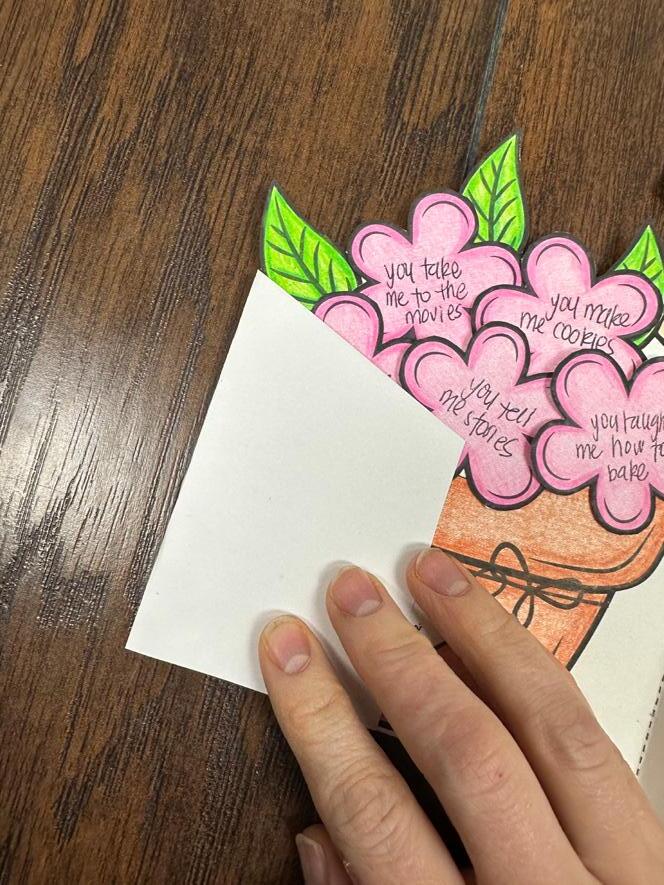 you take
me to the
movies
you make
me cookies
you tell
me stories
me how
bake